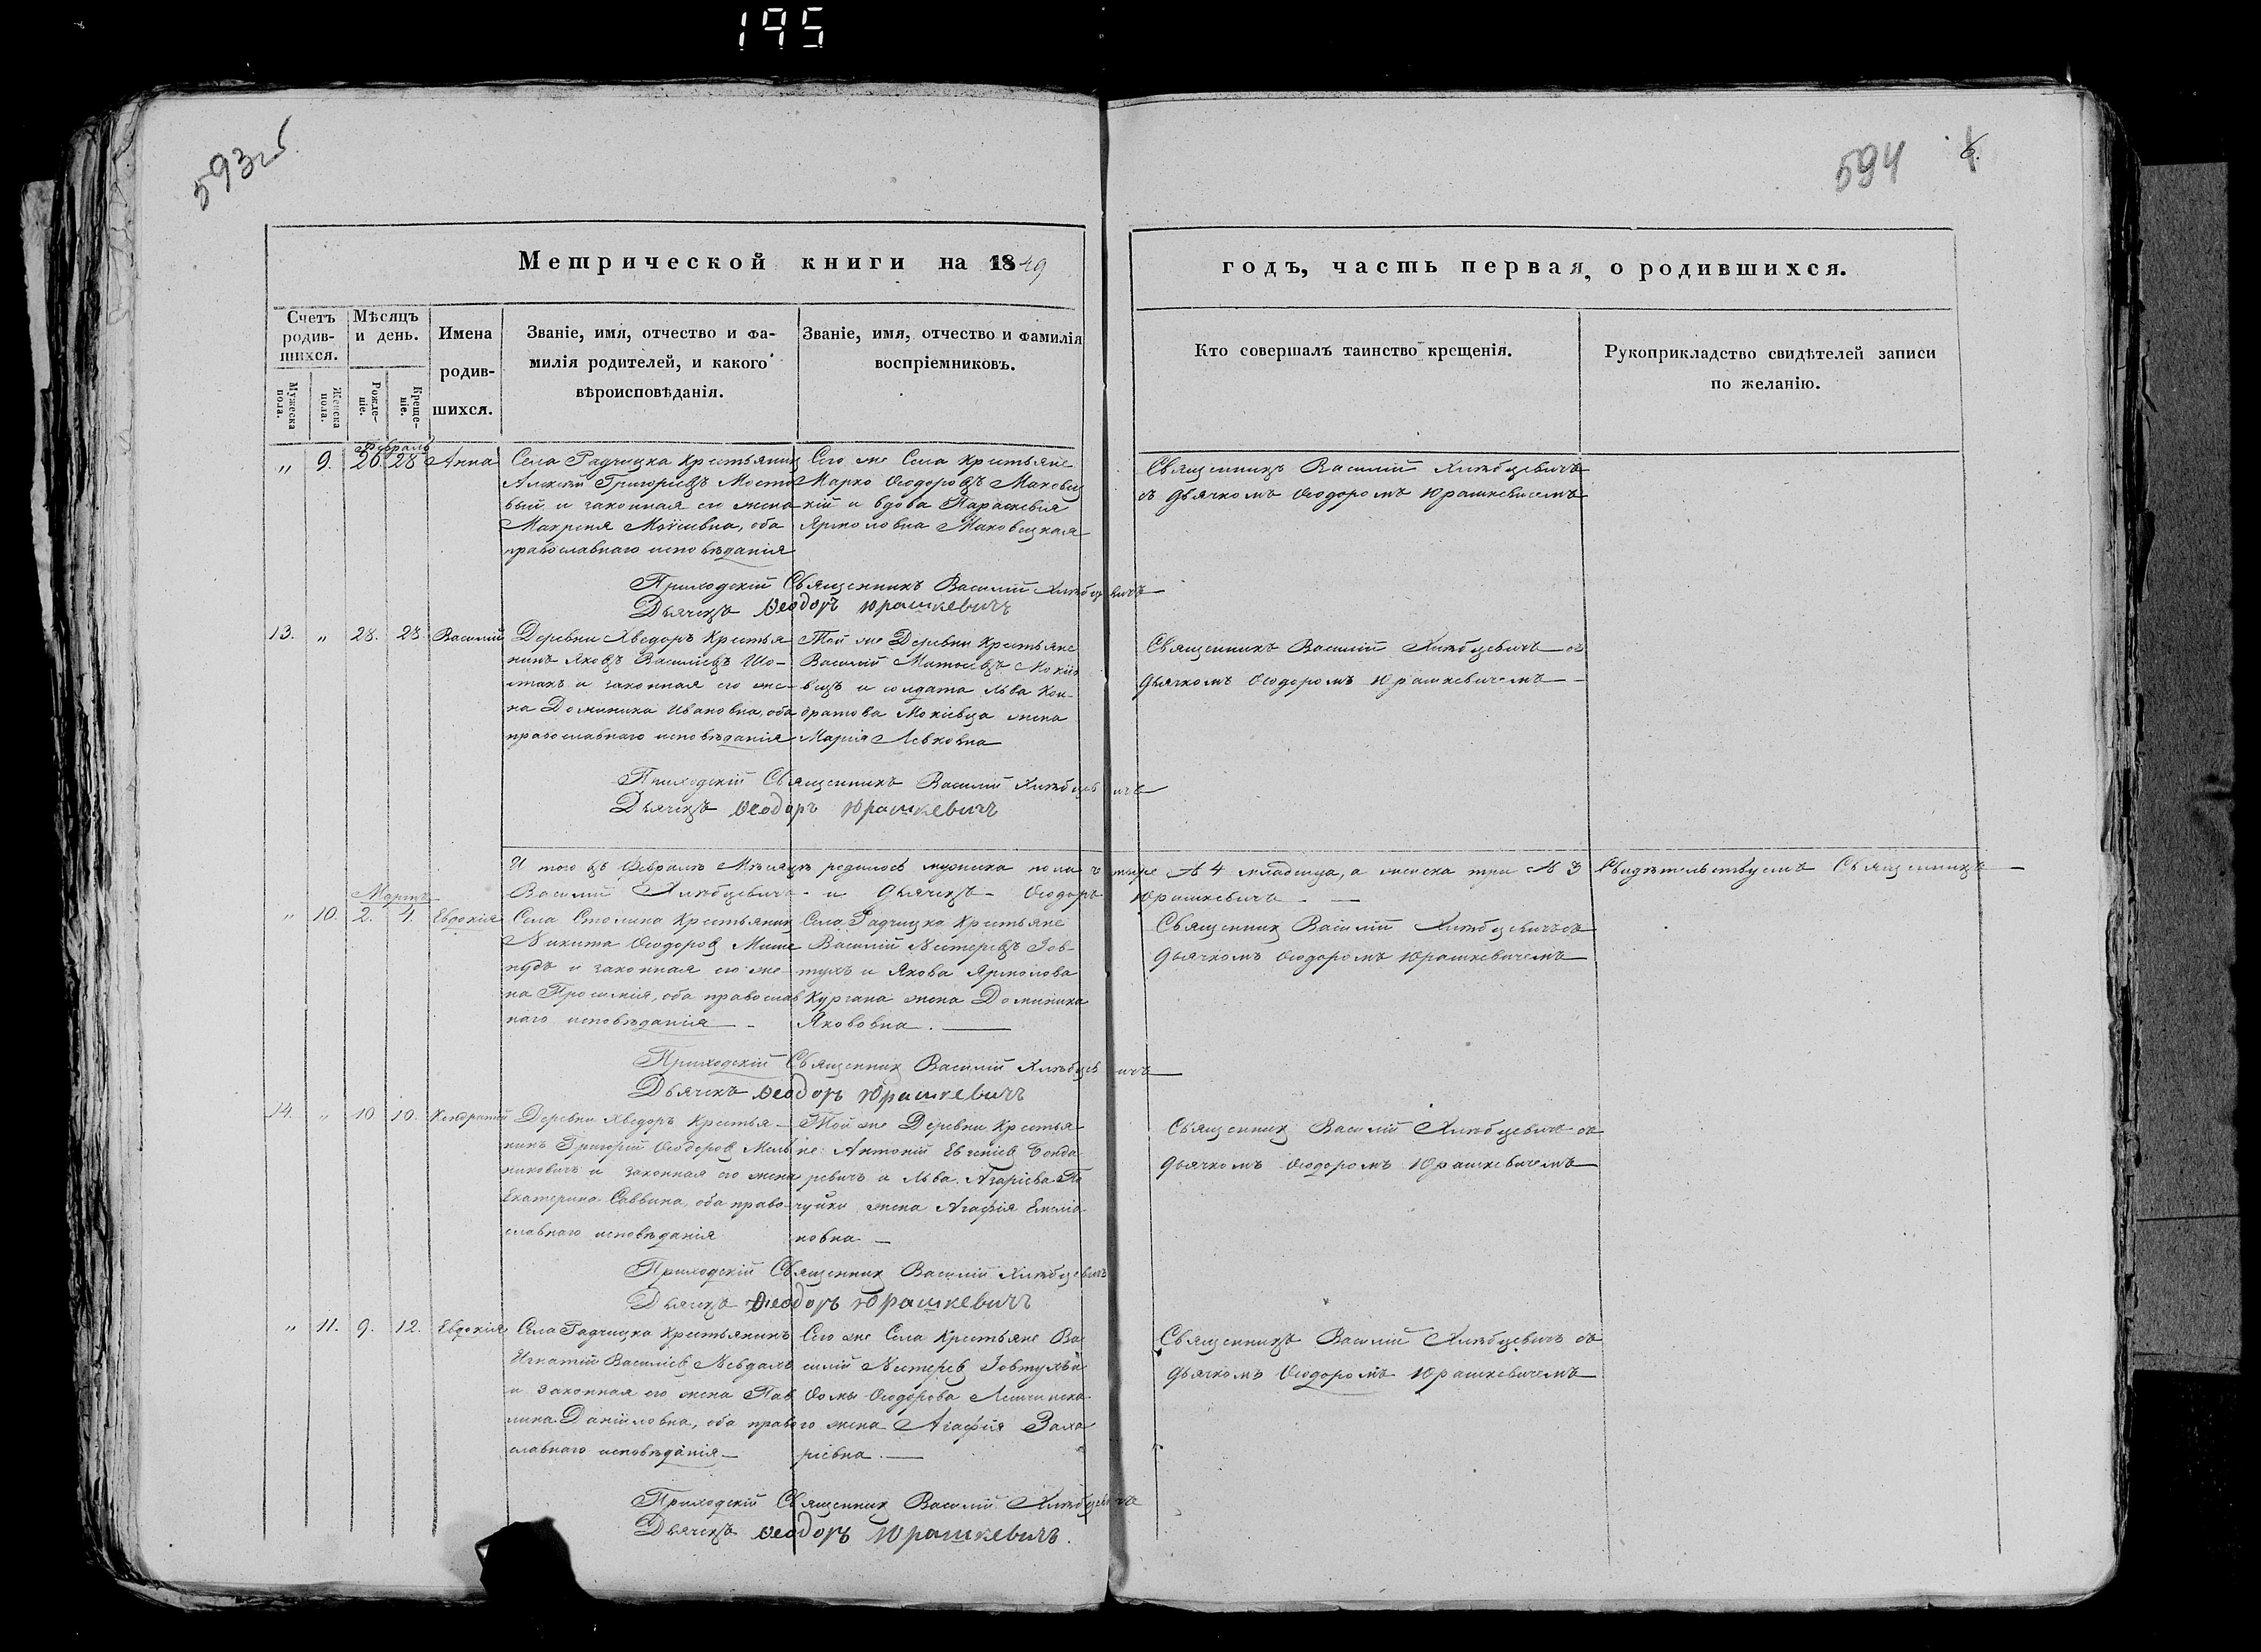 195
593
594
6.
Метрической книги на 1849
годъ, часть первая, о родившихся.
Счетъ родив-шихся.
Мужеска пола.
Женска пола.
Мѣсяцъ и день.
Рожде-ніе.
Креще-ніе.
Имена родив-шихся.
Званіе, имя, отчество и фа-
милія родителей, и какого
вѣроисповѣданія.
Званіе, имя, отчество и фамилія
воспріемниковъ.
Кто совершалъ таинство крещенія.
Рукоприкладство свидѣтелей записи
по желанію.
Февраль
" 9. 26. 28 Анна
Села Радчицка Крестьянинъ
Алексѣй Григорьевъ Мосто
вый и законная его жена
Макреня Моѵсиевна, оба
православнаго исповѣданія
Сего же Села Крестьяне
Марко Ѳеодоровъ Маковец
кій и вдова Параскевія
Ярмоловна Маковецкая
Священникъ Василій Хлѣбцевичъ
съ Дьячкомъ Ѳеодоромъ Юрашкевичемъ
Приходскій Священникъ Василій Хлѣбцевичъ
Дьячекъ Ѳеодоръ Юрашкевичъ
13. " 28. 28. Василій
Деревни Хведоръ Крестья
нинъ Яковъ Василіевъ Шо-
макъ и законная его же-
на Доминика Ивановна, оба
православнаго исповѣданія
Той же Деревни Крестьяне
Василій Матѳеевъ Мокіе
вецъ и солдата Льва Кон-
дратова Мокіевца жена
Марія Левковна
Священникъ Василій Хлѣбцевичъ съ
Дьячкомъ Ѳеодоромъ Юрашкевичемъ
Приходскій Священникъ Василій Хлѣбцевичъ
Дьячекъ Ѳеодоръ Юрашкевичъ
И того въ Февралѣ Мѣсяцѣ родилось мужеска пола четыре № 4 младенца, а женска три № 3 Свидѣтельствуемъ Священникъ
Василій Хлѣбцевичъ и Дьячекъ Ѳеодоръ Юрашкевичъ
Мартъ
" 10. 2. 4. Евдокія
Села Столина Крестьянинъ
Никита Ѳеодоровъ Мише
нудъ и законная его же-
на Просимія, оба православ
наго исповѣданія
Села Радчицка Крестьяне
Василій Нестеревъ Іов-
тухъ и Якова Ярмолова
Кургана жена Доминика
Яковovна.
Священникъ Василій Хлѣбцевичъ съ
Дьячкомъ Ѳеодоромъ Юрашкевичемъ
Приходскій Священникъ Василій Хлѣбцевичъ
Дьячекъ Ѳеодоръ Юрашкевичъ
14. " 10 10. Кондратій
Деревни Хведоръ Крестья-
нинъ Григорій Ѳеодоровъ Мель
никовичъ и законная его жена
Екатерина Саввина, оба право-
славнаго исповѣданія
Той же Деревни Крестья
не Антоній Евгеніевъ Бонда
ревичъ и Льва Азаріева По
чуйки жена Агафія Емелія
новна
Священникъ Василій Хлѣбцевичъ съ
Дьячкомъ Ѳеодоромъ Юрашкевичемъ
Приходскій Священникъ Василій Хлѣбцевичъ
Дьячекъ Ѳеодоръ Юрашкевичъ
" 11. 9. 12. Евдокія
Села Радчицка Крестьянинъ
Игнатій Василіевъ Невдахъ
и законная его жена Пав
лина Даніиловна, оба право
славнаго исповѣданія
Сего же Села Крестьяне Ва
силій Нестеревъ Іовтухъ и
Ѳомы Ѳеодорова Лещинска
го жена Агафія Заха
ріевна.
Священникъ Василій Хлѣбцевичъ съ
Дьячкомъ Ѳеодоромъ Юрашкевичемъ
Приходскій Священникъ Василій Хлѣбцевичъ
Дьячекъ Ѳеодоръ Юрашкевичъ.